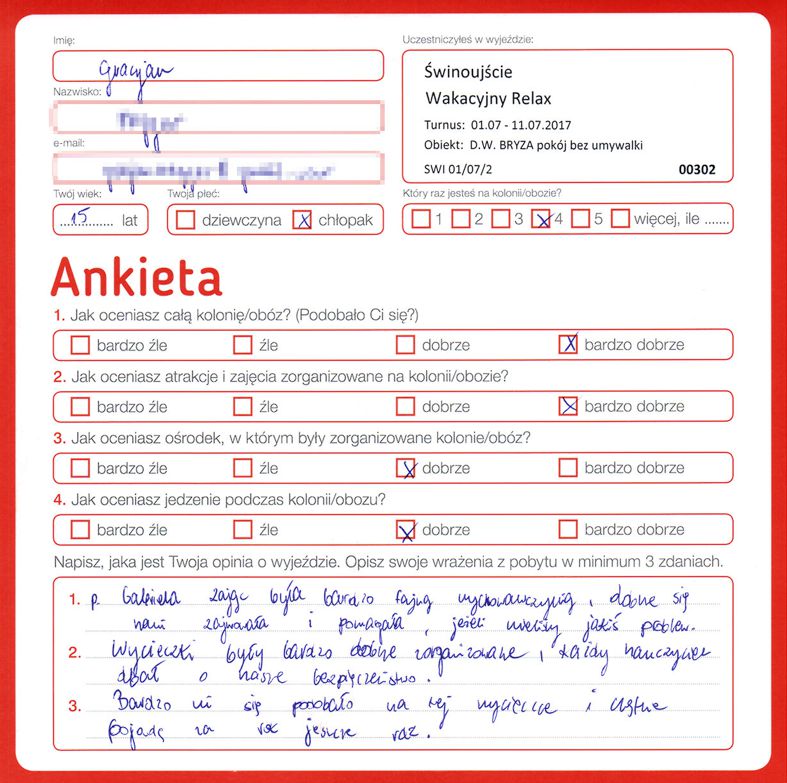 Imię:
Gracjan
Uczestniczyłeś w wyjeździe:
Świnoujście
Wakacyjny Relax
Turnus: 01.07 - 11.07.2017
Obiekt: D.W. BRYZA pokój bez umywalki
SWI 01/07/2 00302
Nazwisko:
e-mail:
Twój wiek:
15 lat
Twoja płeć:
dziewczyna X chłopak
Który raz jesteś na kolonii/obozie?
1 2 3 X 4 5 więcej, ile .......
Ankieta
1. Jak oceniasz całą kolonię/obóz? (Podobało Ci się?)
bardzo źle źle dobrze X bardzo dobrze
2. Jak oceniasz atrakcje i zajęcia zorganizowane na kolonii/obozie?
bardzo źle źle dobrze X bardzo dobrze
3. Jak oceniasz ośrodek, w którym były zorganizowane kolonie/obóz?
bardzo źle źle X dobrze bardzo dobrze
4. Jak oceniasz jedzenie podczas kolonii/obozu?
bardzo źle źle X dobrze bardzo dobrze
Napisz, jaka jest Twoja opinia o wyjeździe. Opisz swoje wrażenia z pobytu w minimum 3 zdaniach.
1. p. Gabriela Zając była bardzo fajną wychowawczynią, dobrze się
nami zajmowała i pomagała, jeżeli mieliśmy jakiś problem.
2. Wycieczki były bardzo dobrze zorganizowane, każdy nauczyciel
dbał o nasze bezpieczeństwo.
3. Bardzo mi się podobało na tej wycieczce i chętnie
pojadę za rok jeszcze raz.